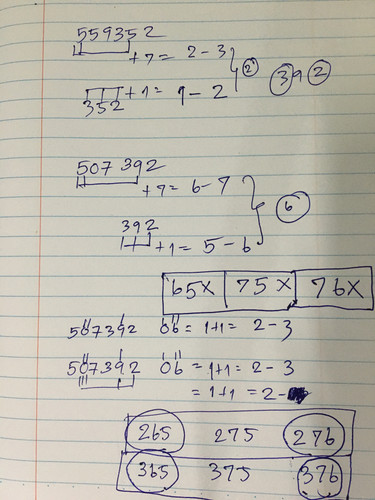 559352
+7= 2-3 ② ③9②
352 +1= 1-2
507392
+7= 6-7 ⑥
392
+1= 5-6
65x 75x 76x
507392 06 = 1+1= 2-3
507392 06 = 1+1= 2-3
= 1+1 = 2-
265 275 276
365 375 376